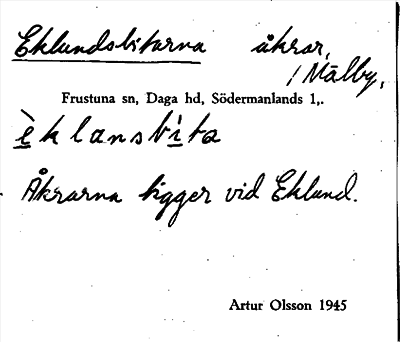 Eklundsbitarna åkrar,
i Mälby,
Frustuna sn, Daga hd, Södermanlands l,.
èklansbìta
Åkrarna ligger vid Eklund.
Artur Olsson 1945